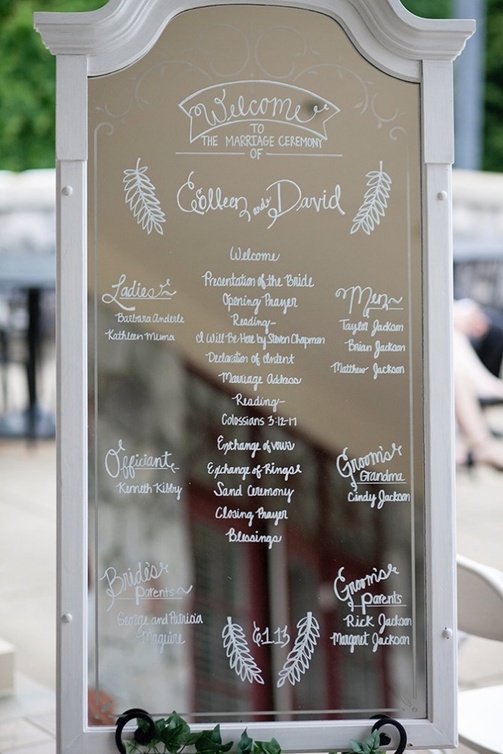 Welcome
TO
THE MARRIAGE CEREMONY
OF
Colleen and David
Welcome
Presentation of the Bride
Opening Prayer
Reading-
I Will Be Here by Steven Chapman
Declaration of Intent
Marriage Address
Reading-
Colossians 3:12-17
Exchange of vows
Exchange of Rings
Sand Ceremony
Closing Prayer
Blessings
Ladies
Barbara Anderle
Kathleen Muma
Men
Taylor Jackson
Brian Jackson
Matthew Jackson
Officiant
Kenneth Kibby
Groom's
Grandma
Cindy Jackson
Bride's
Parents
George and Patricia
Maguire
Groom's
Parents
Rick Jackson
Margaret Jackson
6.1.13